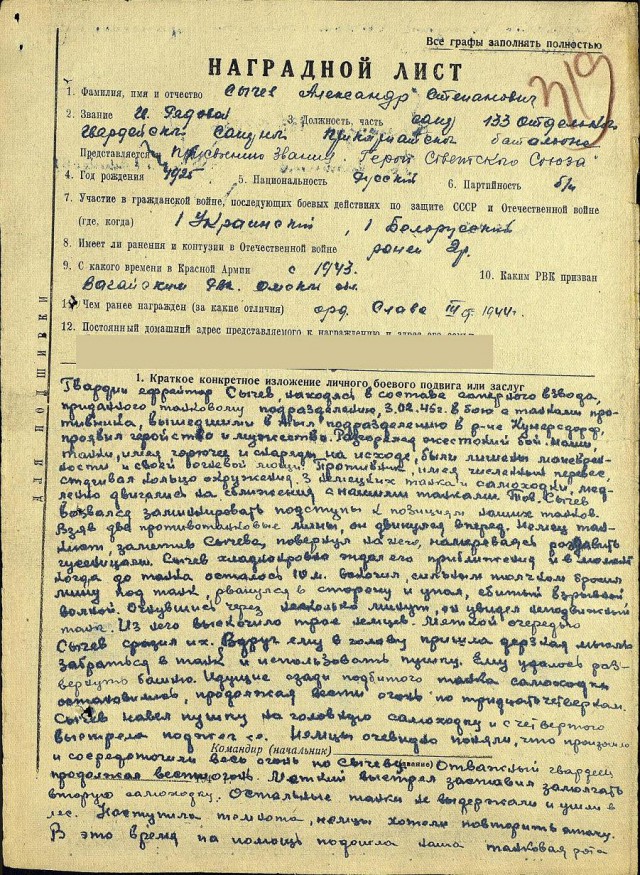 Все графы заполнять полностью
НАГРАДНОЙ ЛИСТ
319
1. Фамилия, имя и отчество Сычев Александр Степанович
2. Звание 3. Должность, часть 133 отдельного
гвардейского батальона
Представляется к присвоению звания "Герой Советского Союза"
4. Год рождения 1925 5. Национальность русский 6. Партийность б/п
7. Участие в гражданской войне, последующих боевых действиях по защите СССР и Отечественной войне
(где, когда) 1 Украинский, 1 Белорусский
8. Имеет ли ранения и контузии в Отечественной войне ранен
9. С какого времени в Красной Армии с 1943. 10. Каким РВК призван
Вагайским
11. Чем ранее награжден (за какие отличия) орд. Слава III ст. 1944 г.
12. Постоянный домашний адрес представляемого к награждению и адрес его семьи
ДЛЯ ПОДШИВКИ
1. Краткое конкретное изложение личного боевого подвига или заслуг
Гвардии ефрейтор Сычев, находясь в составе саперного взвода,
приданного танковому подразделению, 3.02.45г. в бою с танками про-
тивника, вышедшими в тыл подразделению в р-не Кунерсдорф,
проявил геройство и мужество. Разгорелся жестокий бой. Наши
танки, имея горючее и снаряды на исходе, были лишены маневрен-
ности и своей огневой мощи. Противник, имея численный перевес,
кольцо окружения. 3 немецких танка и самоходки, мед-
ленно двигались на сближения с нашими танками. Тов. Сычев
вызвался заминировать подступы к позициям наших танков.
Взяв две противотанковые мины, он двинулся вперед. Немец тан-
кист, заметив Сычева, повернул на него, намереваясь раздавить
гусеницами. Сычев хладнокровно ждал его приближения и в момент
когда до танка осталось 10 м. вскочил, сильным толчком бросил
мину под танк, рванулся в сторону и упал, сбитый взрывной
волной. Очнувшись через несколько минут, он увидел неподвижный
танк. Из него выскочило трое немцев. Меткой очередью
Сычев сразил их. Вдруг ему в голову пришла дерзкая мысль
забраться в танк и использовать пушку. Ему удалось раз-
вернуть башню. Идущие сзади подбитого танка самоходки
остановились, продолжая вести огонь по тридцатьчетверкам.
Сычев навел пушку на головную самоходку и с четвертого
выстрела поджег ее. Немцы очевидно поняли, что произошло
Командир (начальник)
и сосредоточили весь огонь по Сычеву. Отважный гвардеец
(звание)
продолжал вести огонь. Меткий выстрел заставил замолчать
вторую самоходку. Остальные танки не выдержали и ушли в
лес. Наступила темнота, немцы хотели повторить атаку.
В это время на помощь подошла наша танковая рота